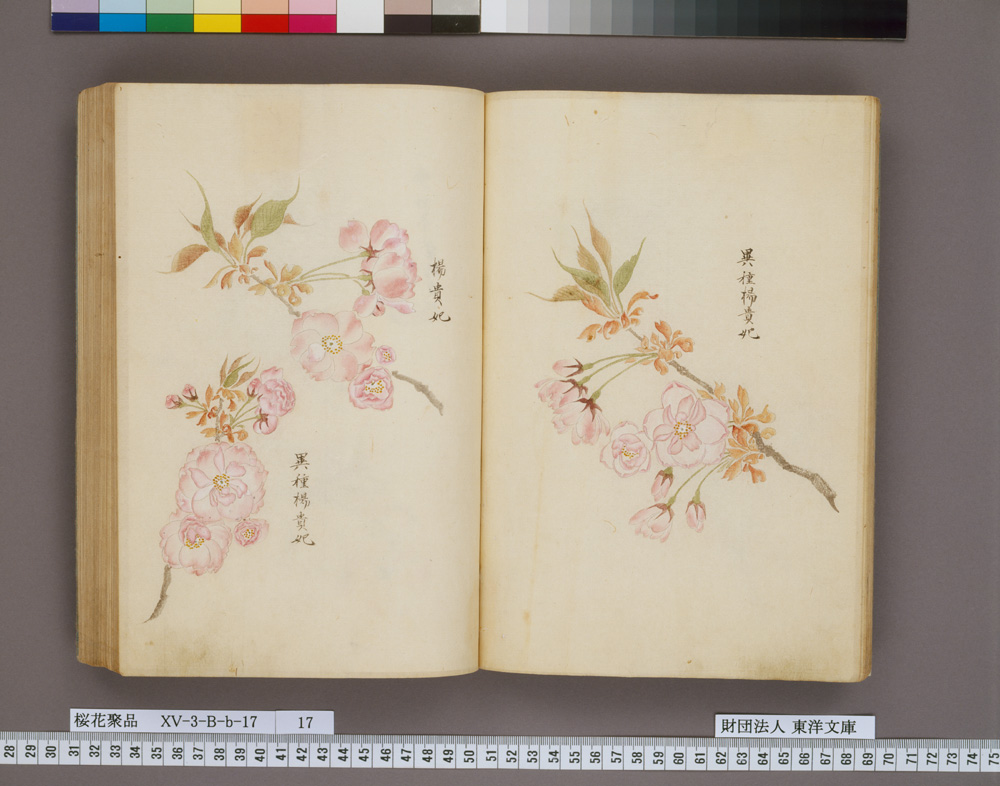 異種楊貴妃
楊貴妃
異種楊貴妃
桜花聚品 XV-3-B-b-17 17
財団法人 東洋文庫
28 29 30 31 32 33 34 35 36 37 38 39 40 41 42 43 44 45 46 47 48 49 50 51 52 53 54 55 56 57 58 59 60 61 62 63 64 65 66 67 68 69 70 71 72 73 74 75